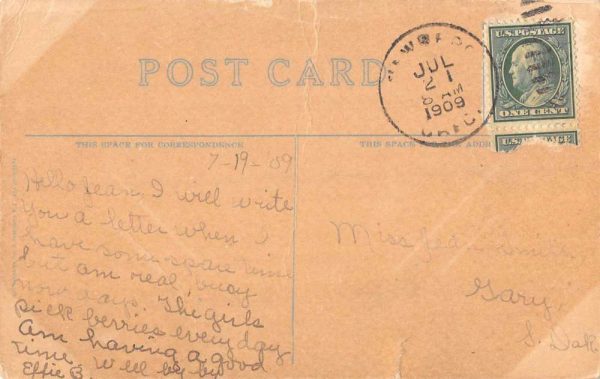 POST CARD
JUL
21
8 AM
1909
OREG.
U.S. POSTAGE
ONE CENT
U.S. POSTAGE
THIS SPACE FOR CORRESPONDENCE
THIS SPACE FOR THE ADDR
7-19-09
Hello Jean, I will write
you a letter when I
have some spare time
but am real busy
now days. The girls
pick berries every day
Am having a good
time. Well by by
Effie B.
Miss Jean
Gary,
S. Dak.